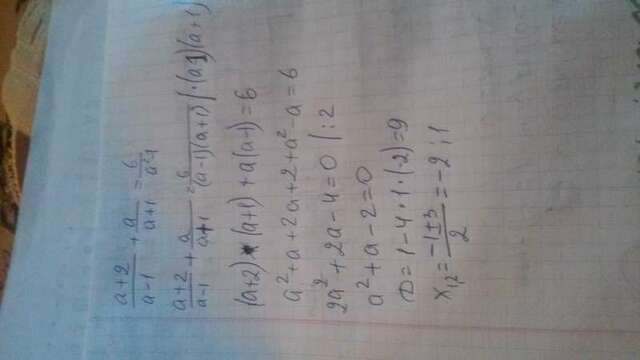 (a+2)/(a-1) + a/(a+1) = 6/(a²-1)
(a+2)/(a-1) + a/(a+1) = 6/((a-1)(a+1)) | ·(a-1)(a+1)
(a+2)·(a+1) + a(a-1) = 6
a²+a+2a+2+a²-a=6
2a²+2a-4=0 | :2
a²+a-2=0
D=1-4·1·(-2)=9
x₁,₂ = (-1±3)/2 = -2; 1